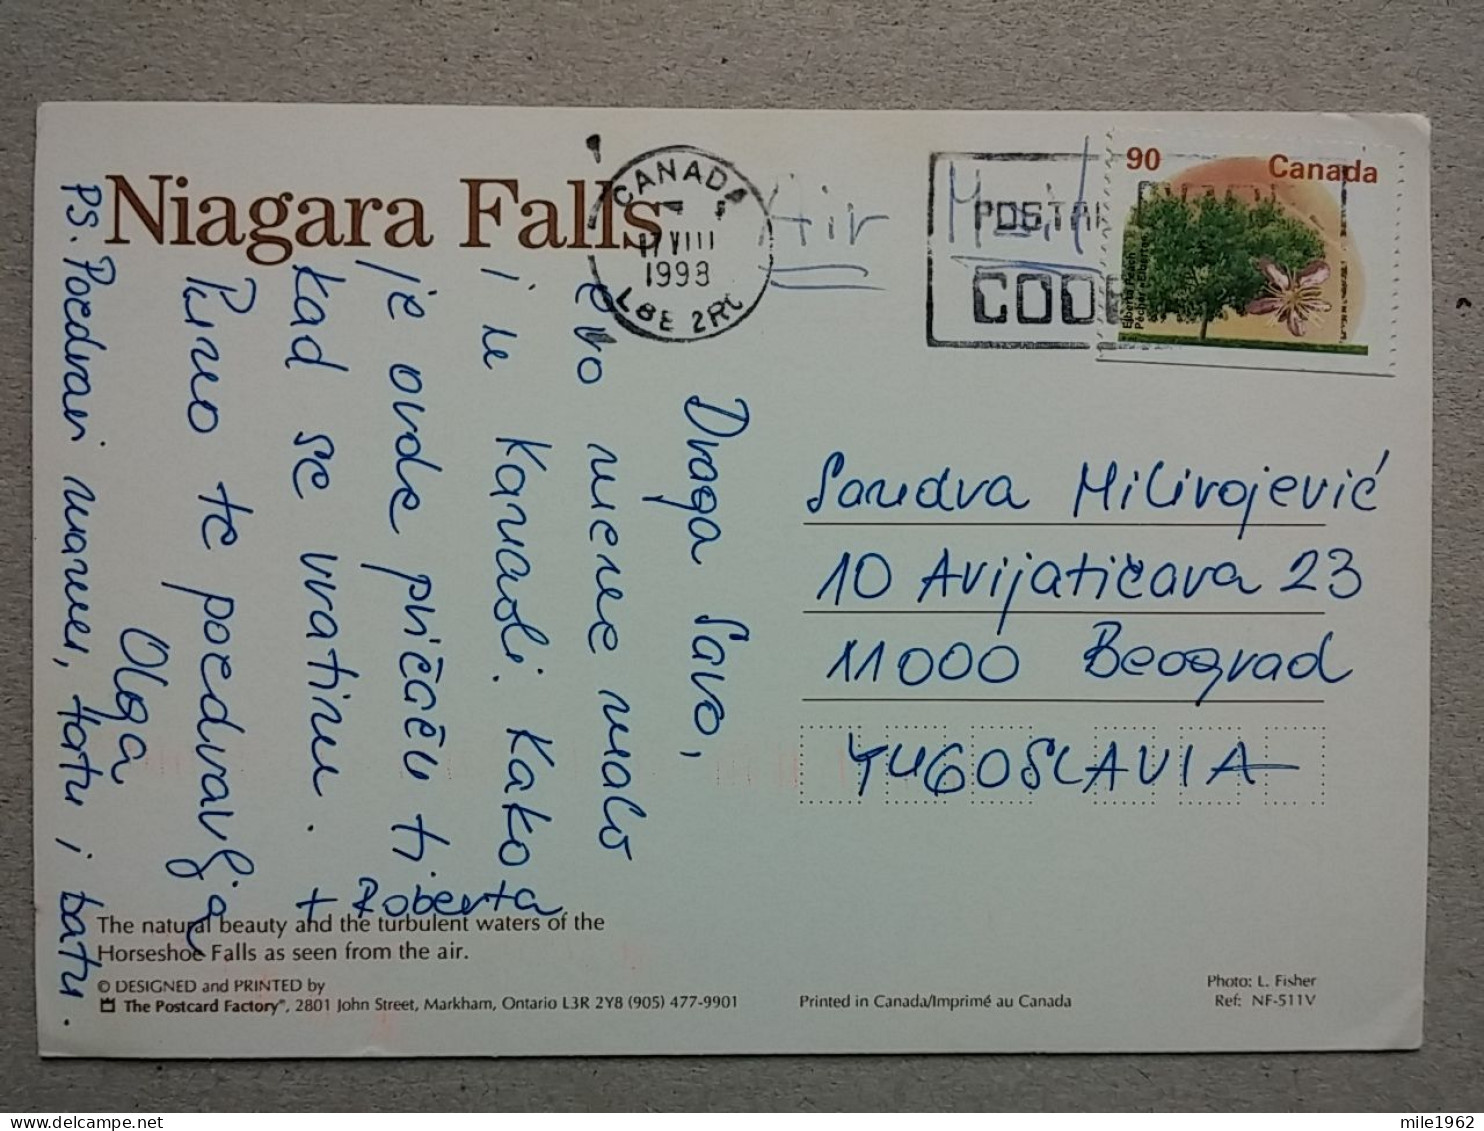 Niagara Falls
CANADA
17 VIII
1998
L8E 2R
Air Mail
POSTAL
CODE
90 Canada
Elberta Peach
Pêcher «Elberta»
Draga Savo,
evo mene malo
i u Kanadi. Kako
je ovde pričaću ti
kad se vratim.
Puno te pozdravlja
Olga
+ Roberta
PS. Pozdravi mamu, tatu i batu.
Sandra Milivojević
10 Avijatičara 23
11000 Beograd
YUGOSLAVIA
The natural beauty and the turbulent waters of the
Horseshoe Falls as seen from the air.
© DESIGNED and PRINTED by
The Postcard Factory®, 2801 John Street, Markham, Ontario L3R 2Y8 (905) 477-9901
Printed in Canada/Imprimé au Canada
Photo: L. Fisher
Ref: NF-511V
mile1962